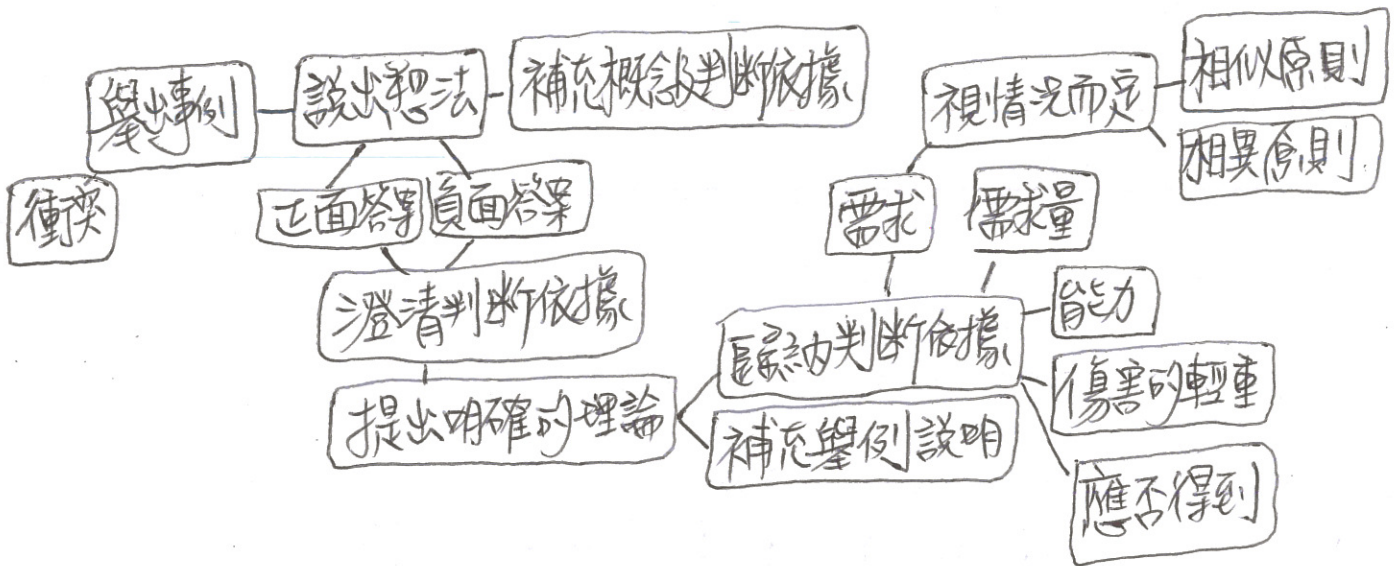 衝突
舉出事例
說出想法
補充概念及判斷依據
正面答案
負面答案
澄清判斷依據
提出明確的理論
歸納判斷依據
補充舉例說明
需求
需求量
視情況而定
相似原則
相異原則
能力
傷害的輕重
應否得到